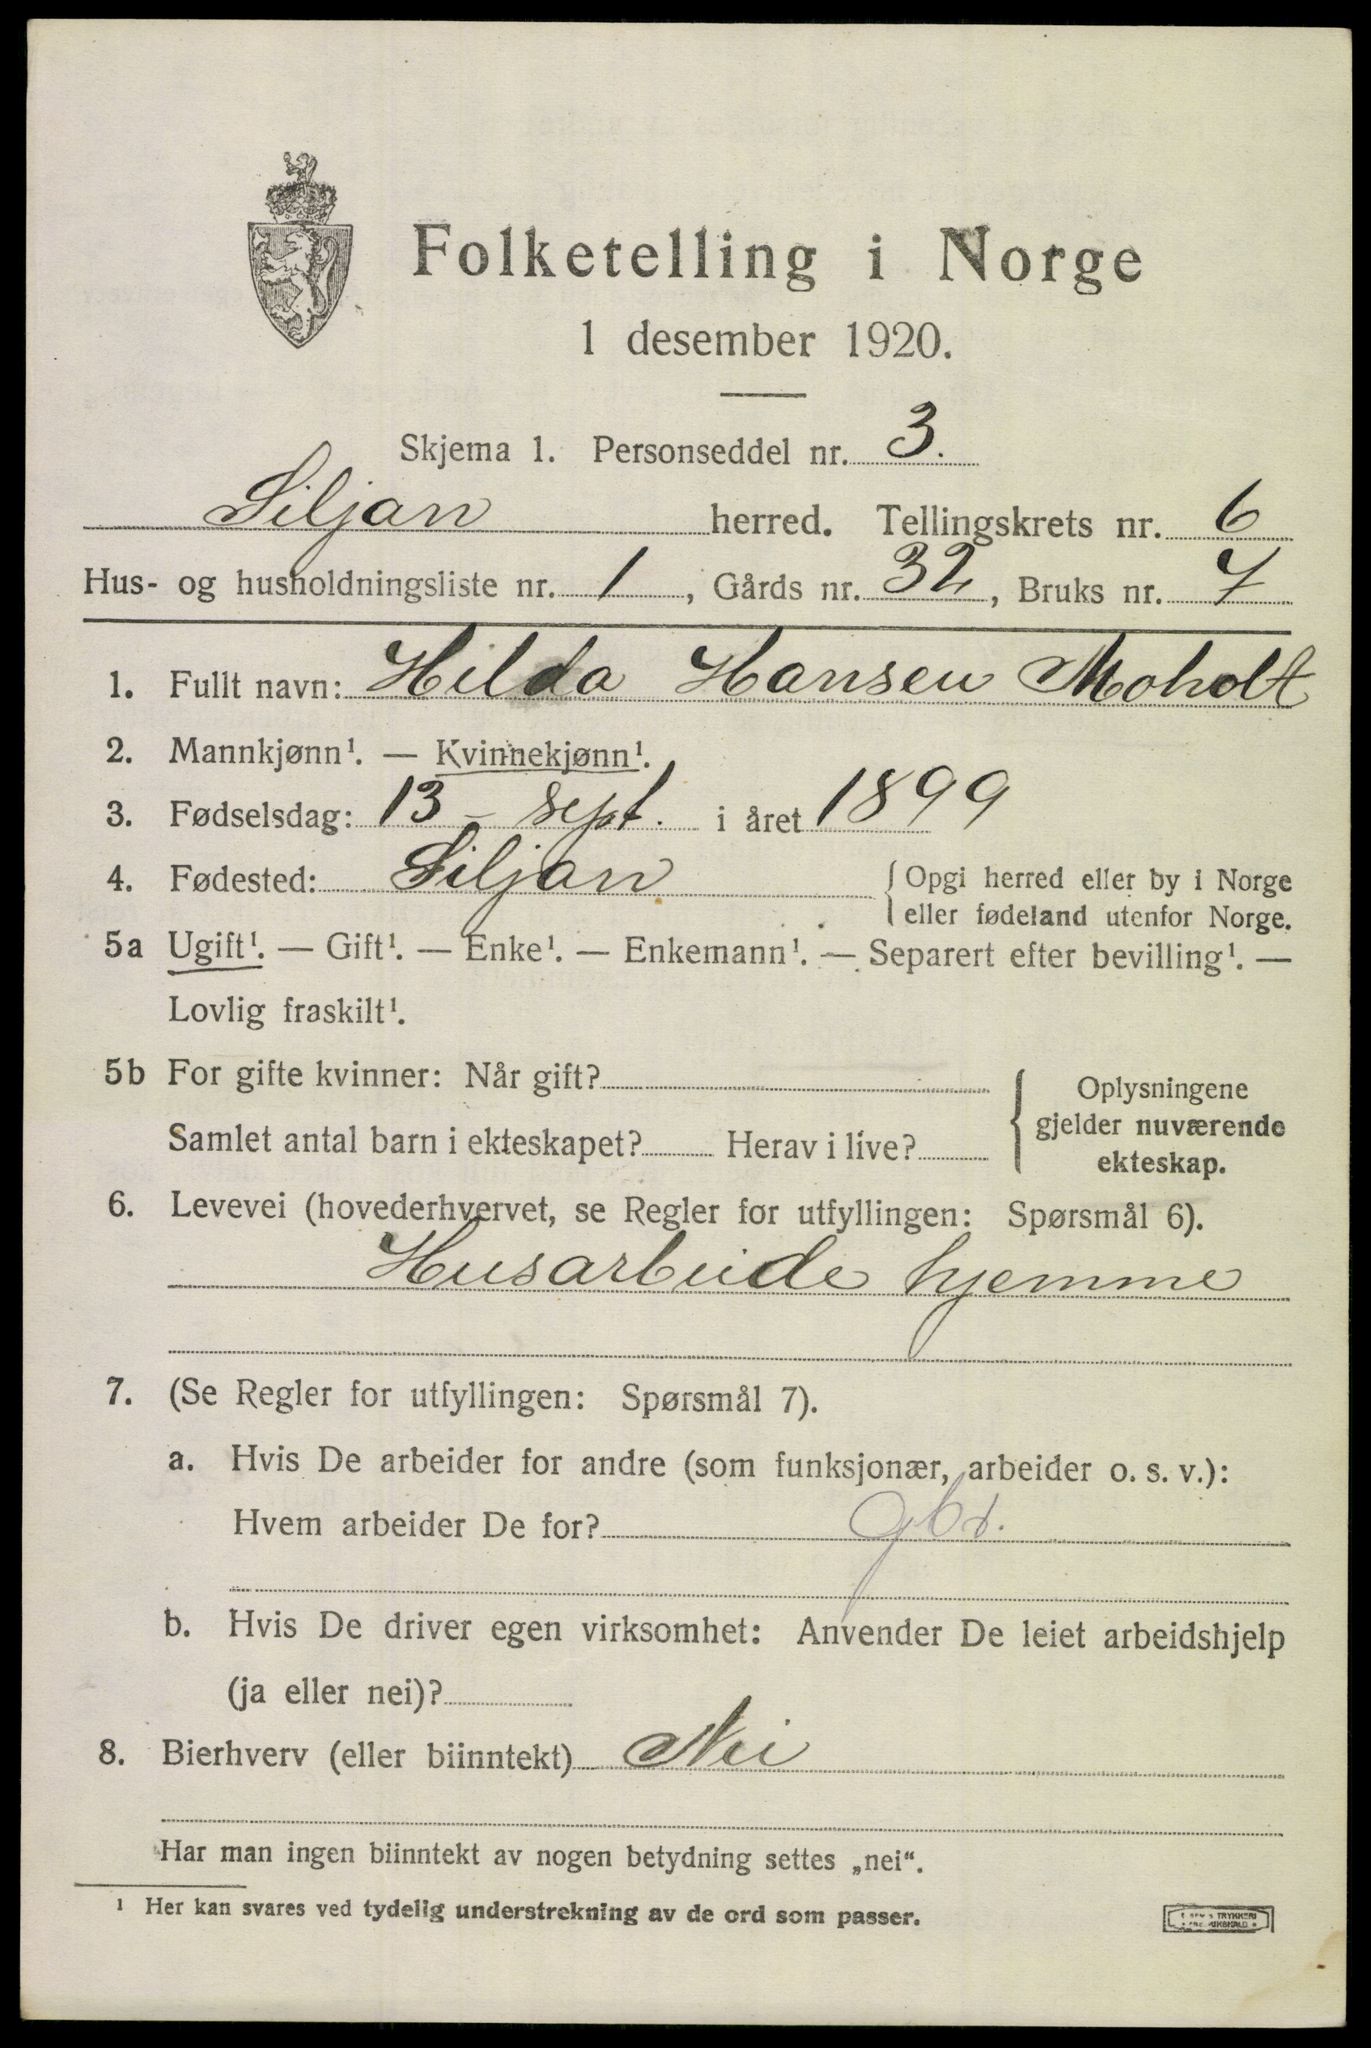 Folketelling i Norge
1 desember 1920.
Skjema 1. Personseddel nr. 3.
Siljan herred. Tellingskrets nr. 6
Hus- og husholdningsliste nr. 1, Gårds nr. 32, Bruks nr. 7
1. Fullt navn: Hilda Hansen Moholt
2. Mannkjønn¹. — Kvinnekjønn¹.
3. Fødselsdag: 13 - sept. i året 1899
4. Fødested: Siljan { Opgi herred eller by i Norge
eller fødeland utenfor Norge.
5a Ugift¹. — Gift¹. — Enke¹. — Enkemann¹. — Separert efter bevilling¹. —
Lovlig fraskilt¹.
5b For gifte kvinner: Når gift?
Samlet antal barn i ekteskapet? Herav i live?
{ Oplysningene
gjelder nuværende
ekteskap.
6. Levevei (hovederhvervet, se Regler for utfyllingen: Spørsmål 6).
Husarbeide hjemme
7. (Se Regler for utfyllingen: Spørsmål 7).
a. Hvis De arbeider for andre (som funksjonær, arbeider o. s. v.):
Hvem arbeider De for? gbr.
b. Hvis De driver egen virksomhet: Anvender De leiet arbeidshjelp
(ja eller nei)?
8. Bierhverv (eller biinntekt) Nei
Har man ingen biinntekt av nogen betydning settes „nei“.
¹ Her kan svares ved tydelig understrekning av de ord som passer.